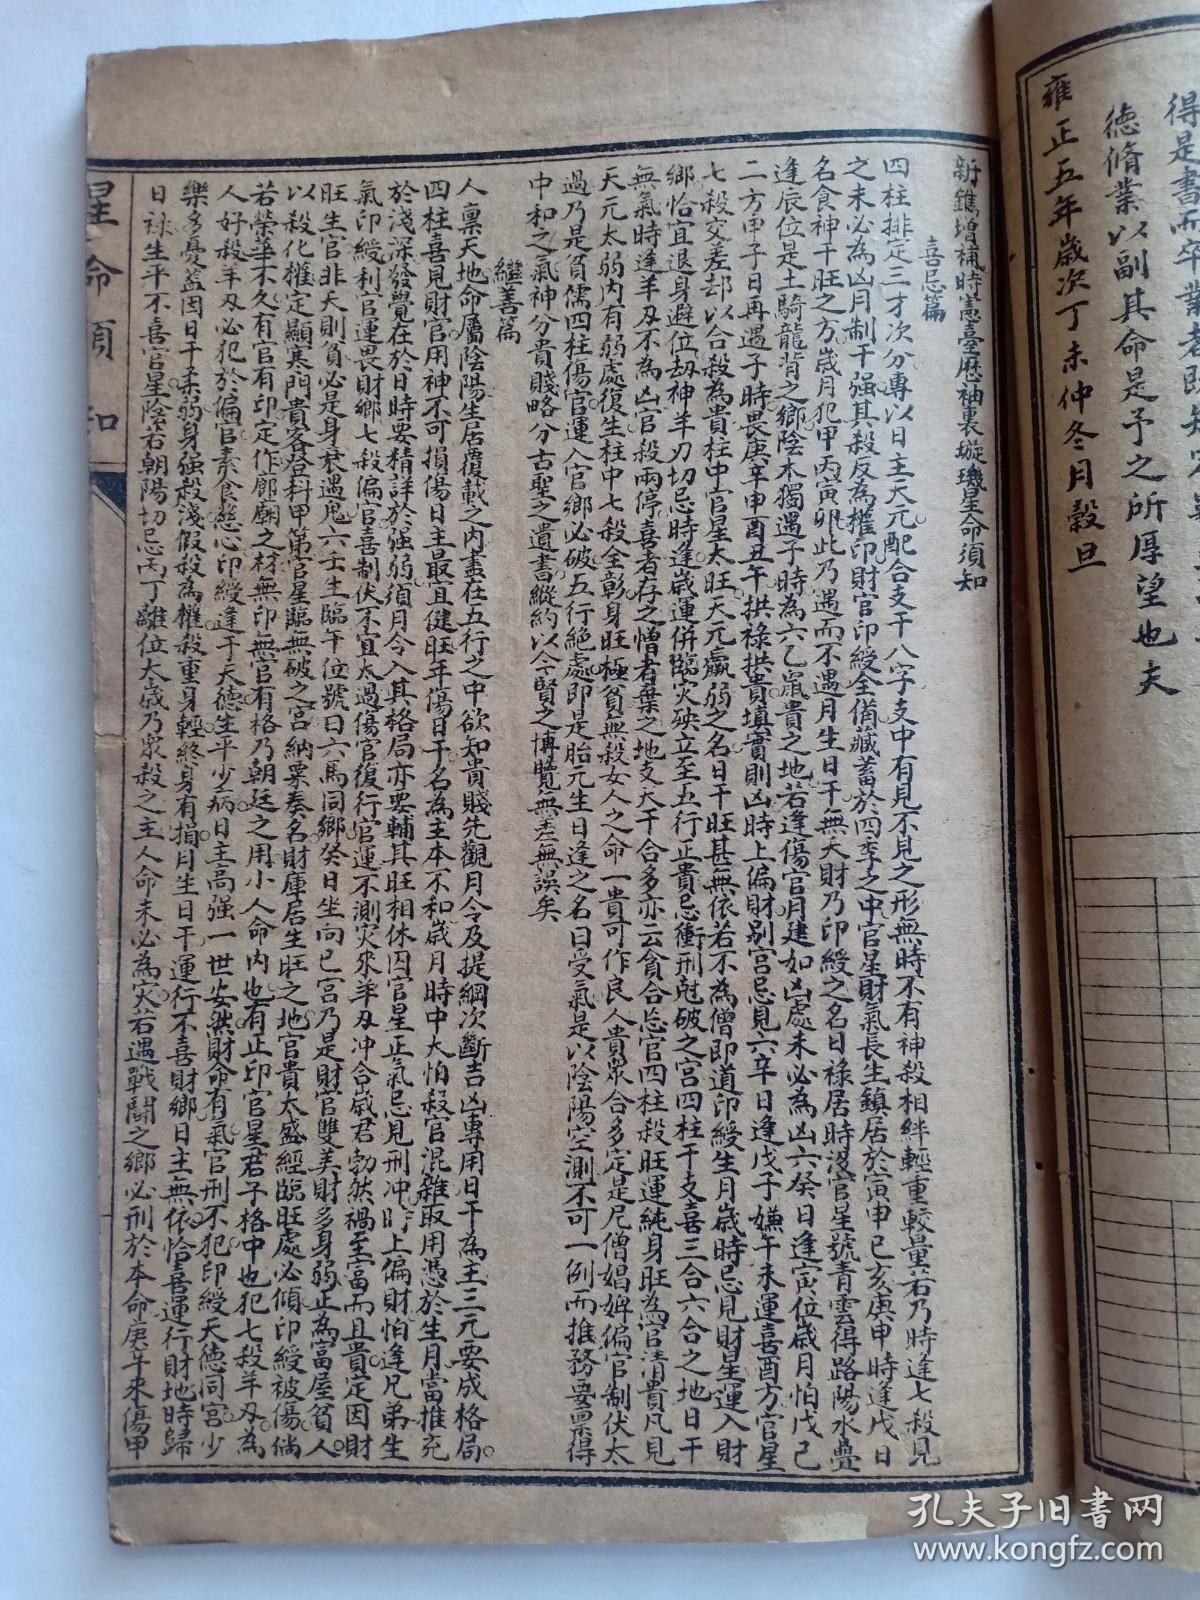 得是書而卒業者即知
德脩業以副其命是予之所厚望也夫
雍正五年歲次丁未仲冬月穀旦
新鐫增補時憲臺曆袖裏璇璣星命須知
喜忌篇
四柱排定三才次分專以日主天元配合支干八字支中有見不見之形無時不有神殺相絆輕重較量若乃時逢七殺見
之未必為凶月制干强其殺反為權印財官印綬全俻藏蓄於四季之中官星財氣長生鎮居於寅申巳亥庚申時逢戊日
名食神干旺之方歲月犯甲丙寅卯此乃遇而不遇月生日干無天財乃印綬之名日祿居時沒官星號青雲得路陽水疊
逢辰位是土騎龍背之鄉陰木獨遇子時為六乙鼠貴之地若逢傷官月建如凶處未必為凶六癸日逢寅位歲月怕戊己
二方甲子日再遇子時畏庚辛申酉丑午拱祿拱貴填實則凶時上偏財别宮忌見六辛日逢戊子嫌午未運喜酉方官星
七殺交差却以合殺為貴柱中官星太旺天元羸弱之名日干旺甚無依若不為僧即道印綬生月歲時忌見財星運入財
鄉恰宜退身避位刼神羊刀切忌時逢歲運併臨灾殃立至五行正貴忌衝刑尅破之宮四柱干支喜三合六合之地日干
無氣時逢羊刄不為凶官殺兩停喜者存之憎者棄之地支天干合多亦云貪合忘官四柱殺旺運純身旺為官清貴凡見
天元太弱內有弱處復生柱中七殺全彰身旺極貧無殺女人之命一貴可作良人貴眾合多定是尼僧娼婢偏官制伏太
過乃是貧儒四柱傷官運入官鄉必破五行絶處即是胎元生日逢之名曰受氣是以陰陽罕測不可一例而推務要稟得
中和之氣神分貴賤略分古聖之遺書縱約以今賢之博覽無差無誤矣
繼善篇
人稟天地命屬陰陽生居覆載之內盡在五行之中欲知貴賤先觀月令及提綱次斷吉凶專用日干為主三元要成格局
四柱喜見財官用神不可損傷日主最宜健旺年傷日干名為主本不和歲月時中大怕殺官混雜取用憑於生月當推究
於淺深發覺在於日時要精詳於强弱須月令入其格局亦要輔其旺相休囚官星正氣忌見刑冲時上偏財怕逢兄弟生
氣印綬利官運畏財鄉七殺偏官喜制伏不宜太過傷官復行官運不測灾來羊刄冲合歲君勃然禍至富而且貴定因財
旺生官非夭則貧必是身衰遇鬼六壬生臨午位號曰六馬同鄉癸日坐向巳宮乃是財官雙美財多身弱正為富屋貧人
以殺化權定顯寒門貴客登科甲第官星臨無破之宮納粟奏名財庫居生旺之地官貴太盛經臨旺處必傾印綬被傷倘
若榮華不久有官有印定作郎廟之材無印無官有格乃朝廷之用小人命內也有正印官星君子格中也犯七殺羊刄為
人好殺羊刄必犯於偏官素食慈心印綬逢于天德生平少病日主高强一世安然財命有氣官刑不犯印綬天德同宮少
樂多憂盖因日干柔弱身强殺淺假殺為權殺重身輕終身有損月生日干運行不喜財鄉日主無依恰喜運行財地時歸
日祿生平不喜官星陰若朝陽切忌丙丁離位太歲乃眾殺之主人命未必為灾若遇戰鬪之鄉必刑於本命庚年來傷甲
星命須知
孔夫子旧书网
www.kongfz.com